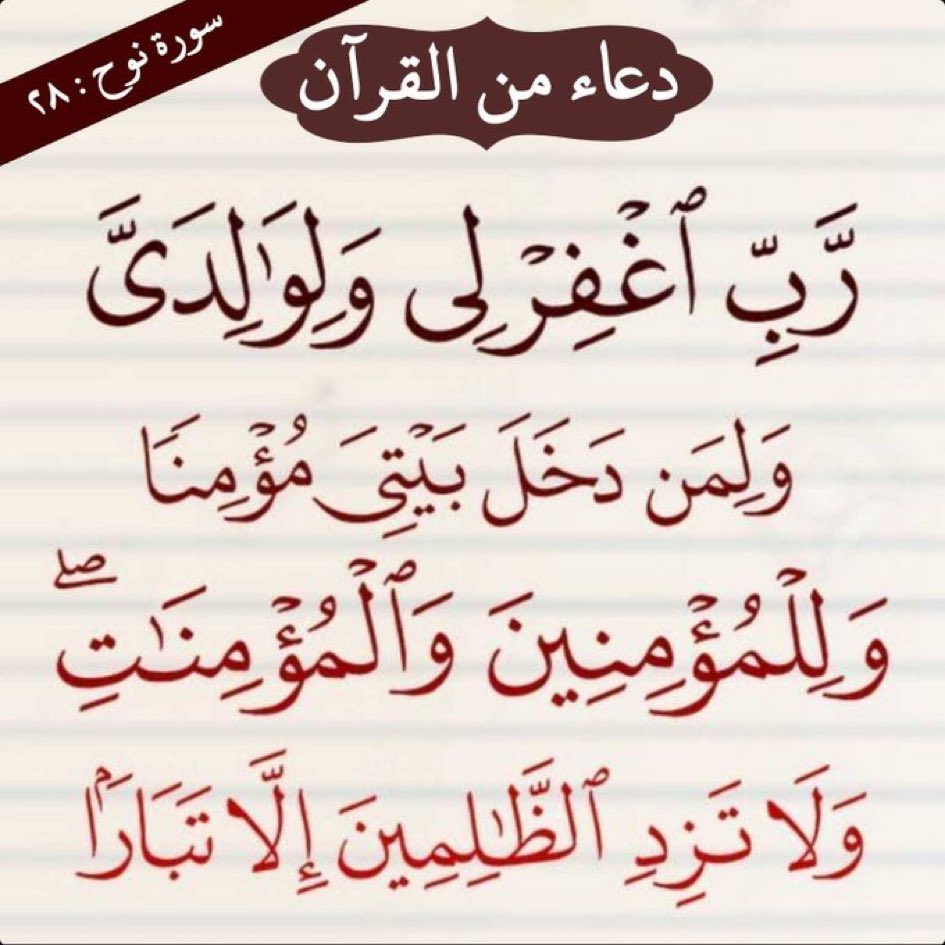 سورة نوح : ٢٨
دعاء من القرآن
رَّبِّ ٱغْفِرْ لِى وَلِوَٰلِدَىَّ
وَلِمَن دَخَلَ بَيْتِىَ مُؤْمِنًا
وَلِلْمُؤْمِنِينَ وَٱلْمُؤْمِنَٰتِۖ
وَلَا تَزِدِ ٱلظَّٰلِمِينَ إِلَّا تَبَارًۢا